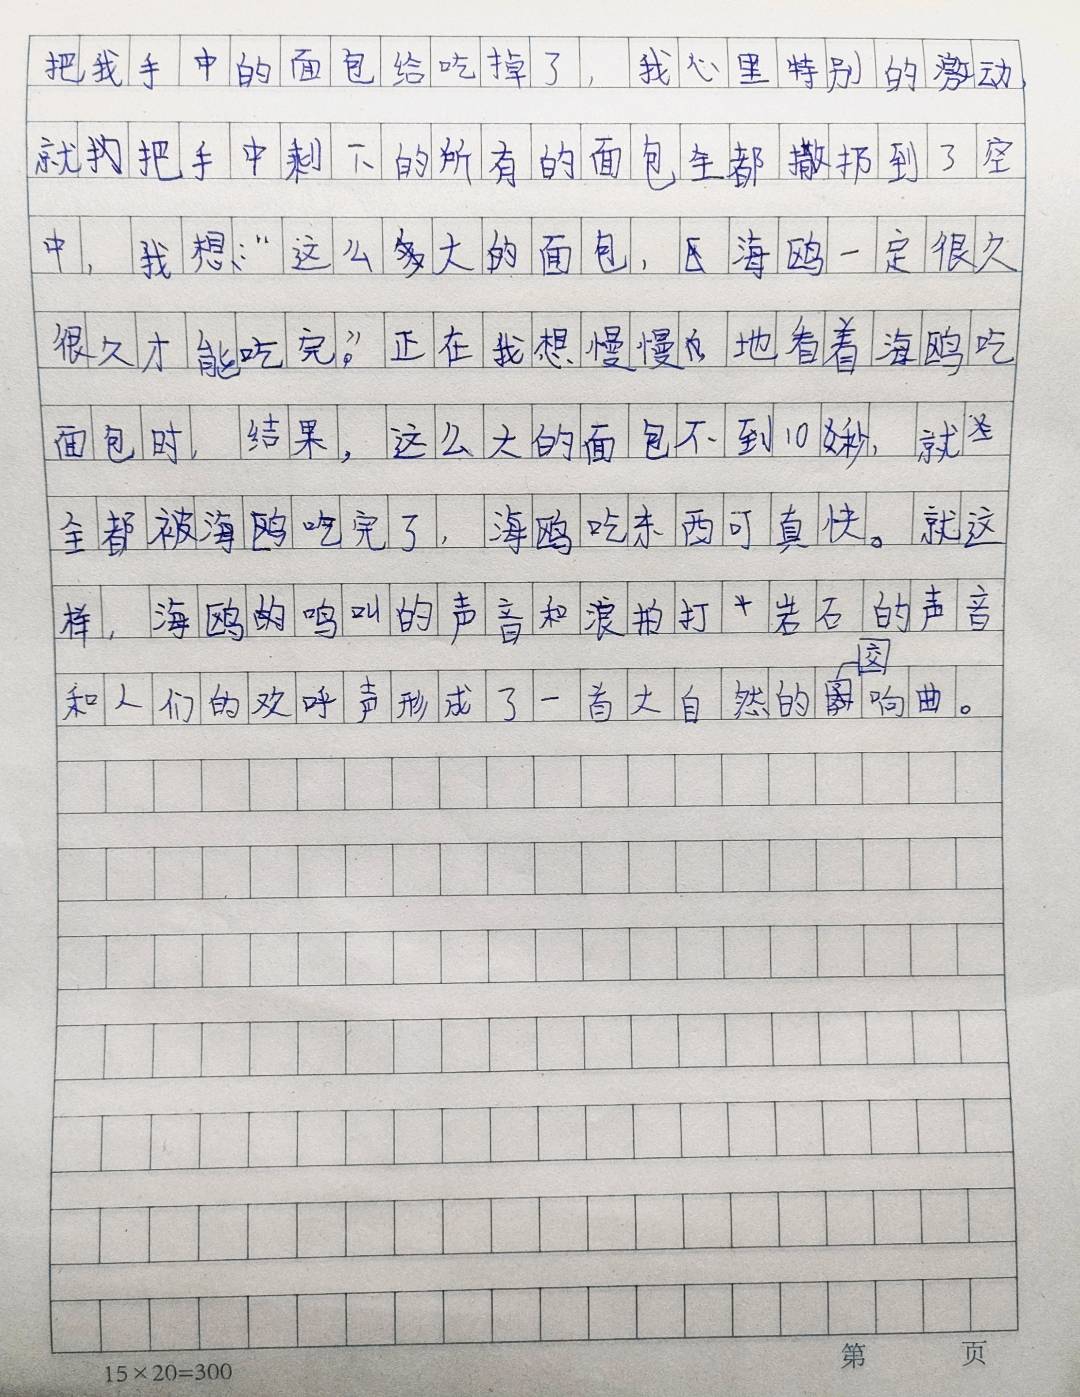 把我手中的面包给吃掉了，我心里特别的激动，
就把手中剩下的所有的面包全都撒扔到了空
中，我想：“这么大的面包，海鸥一定很久
很久才能吃完。”正在我想慢慢地看着海鸥吃
面包时，结果，这么大的面包不到10秒，就
全都被海鸥吃完了，海鸥吃东西可真快。就这
样，海鸥的鸣叫的声音和浪拍打岩石的声音
交
和人们的欢呼声形成了一首大自然的响曲。
15×20=300
第 页